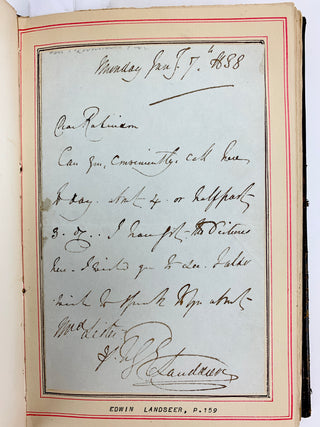 Monday Jany 7th 1838
Dear Robinson
Can you, conveniently call here
to day. about 4. or half past
3. I have got the Pictures
here. I wished you to see. I also
wish to speak to you about
Lister
E Landseer
EDWIN LANDSEER, P.159